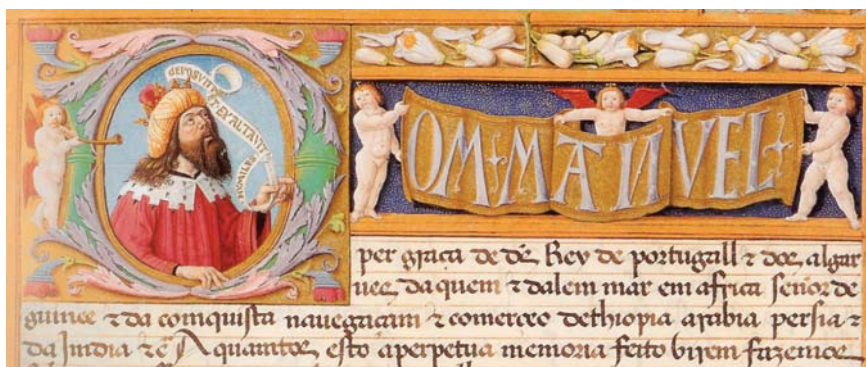 DEPOSVIT
ET EXALTAVIT
HVMILES
OM MANVEL
per graça de ds Rey de portugall z dos algar
ues daquem z dalem mar em africa senor de
guinee z da comquista nauegaçam z comercio dethiopia arabia persia z
da Jmdia zc A quamtos esto aperpetua memoria feito virem fazemos